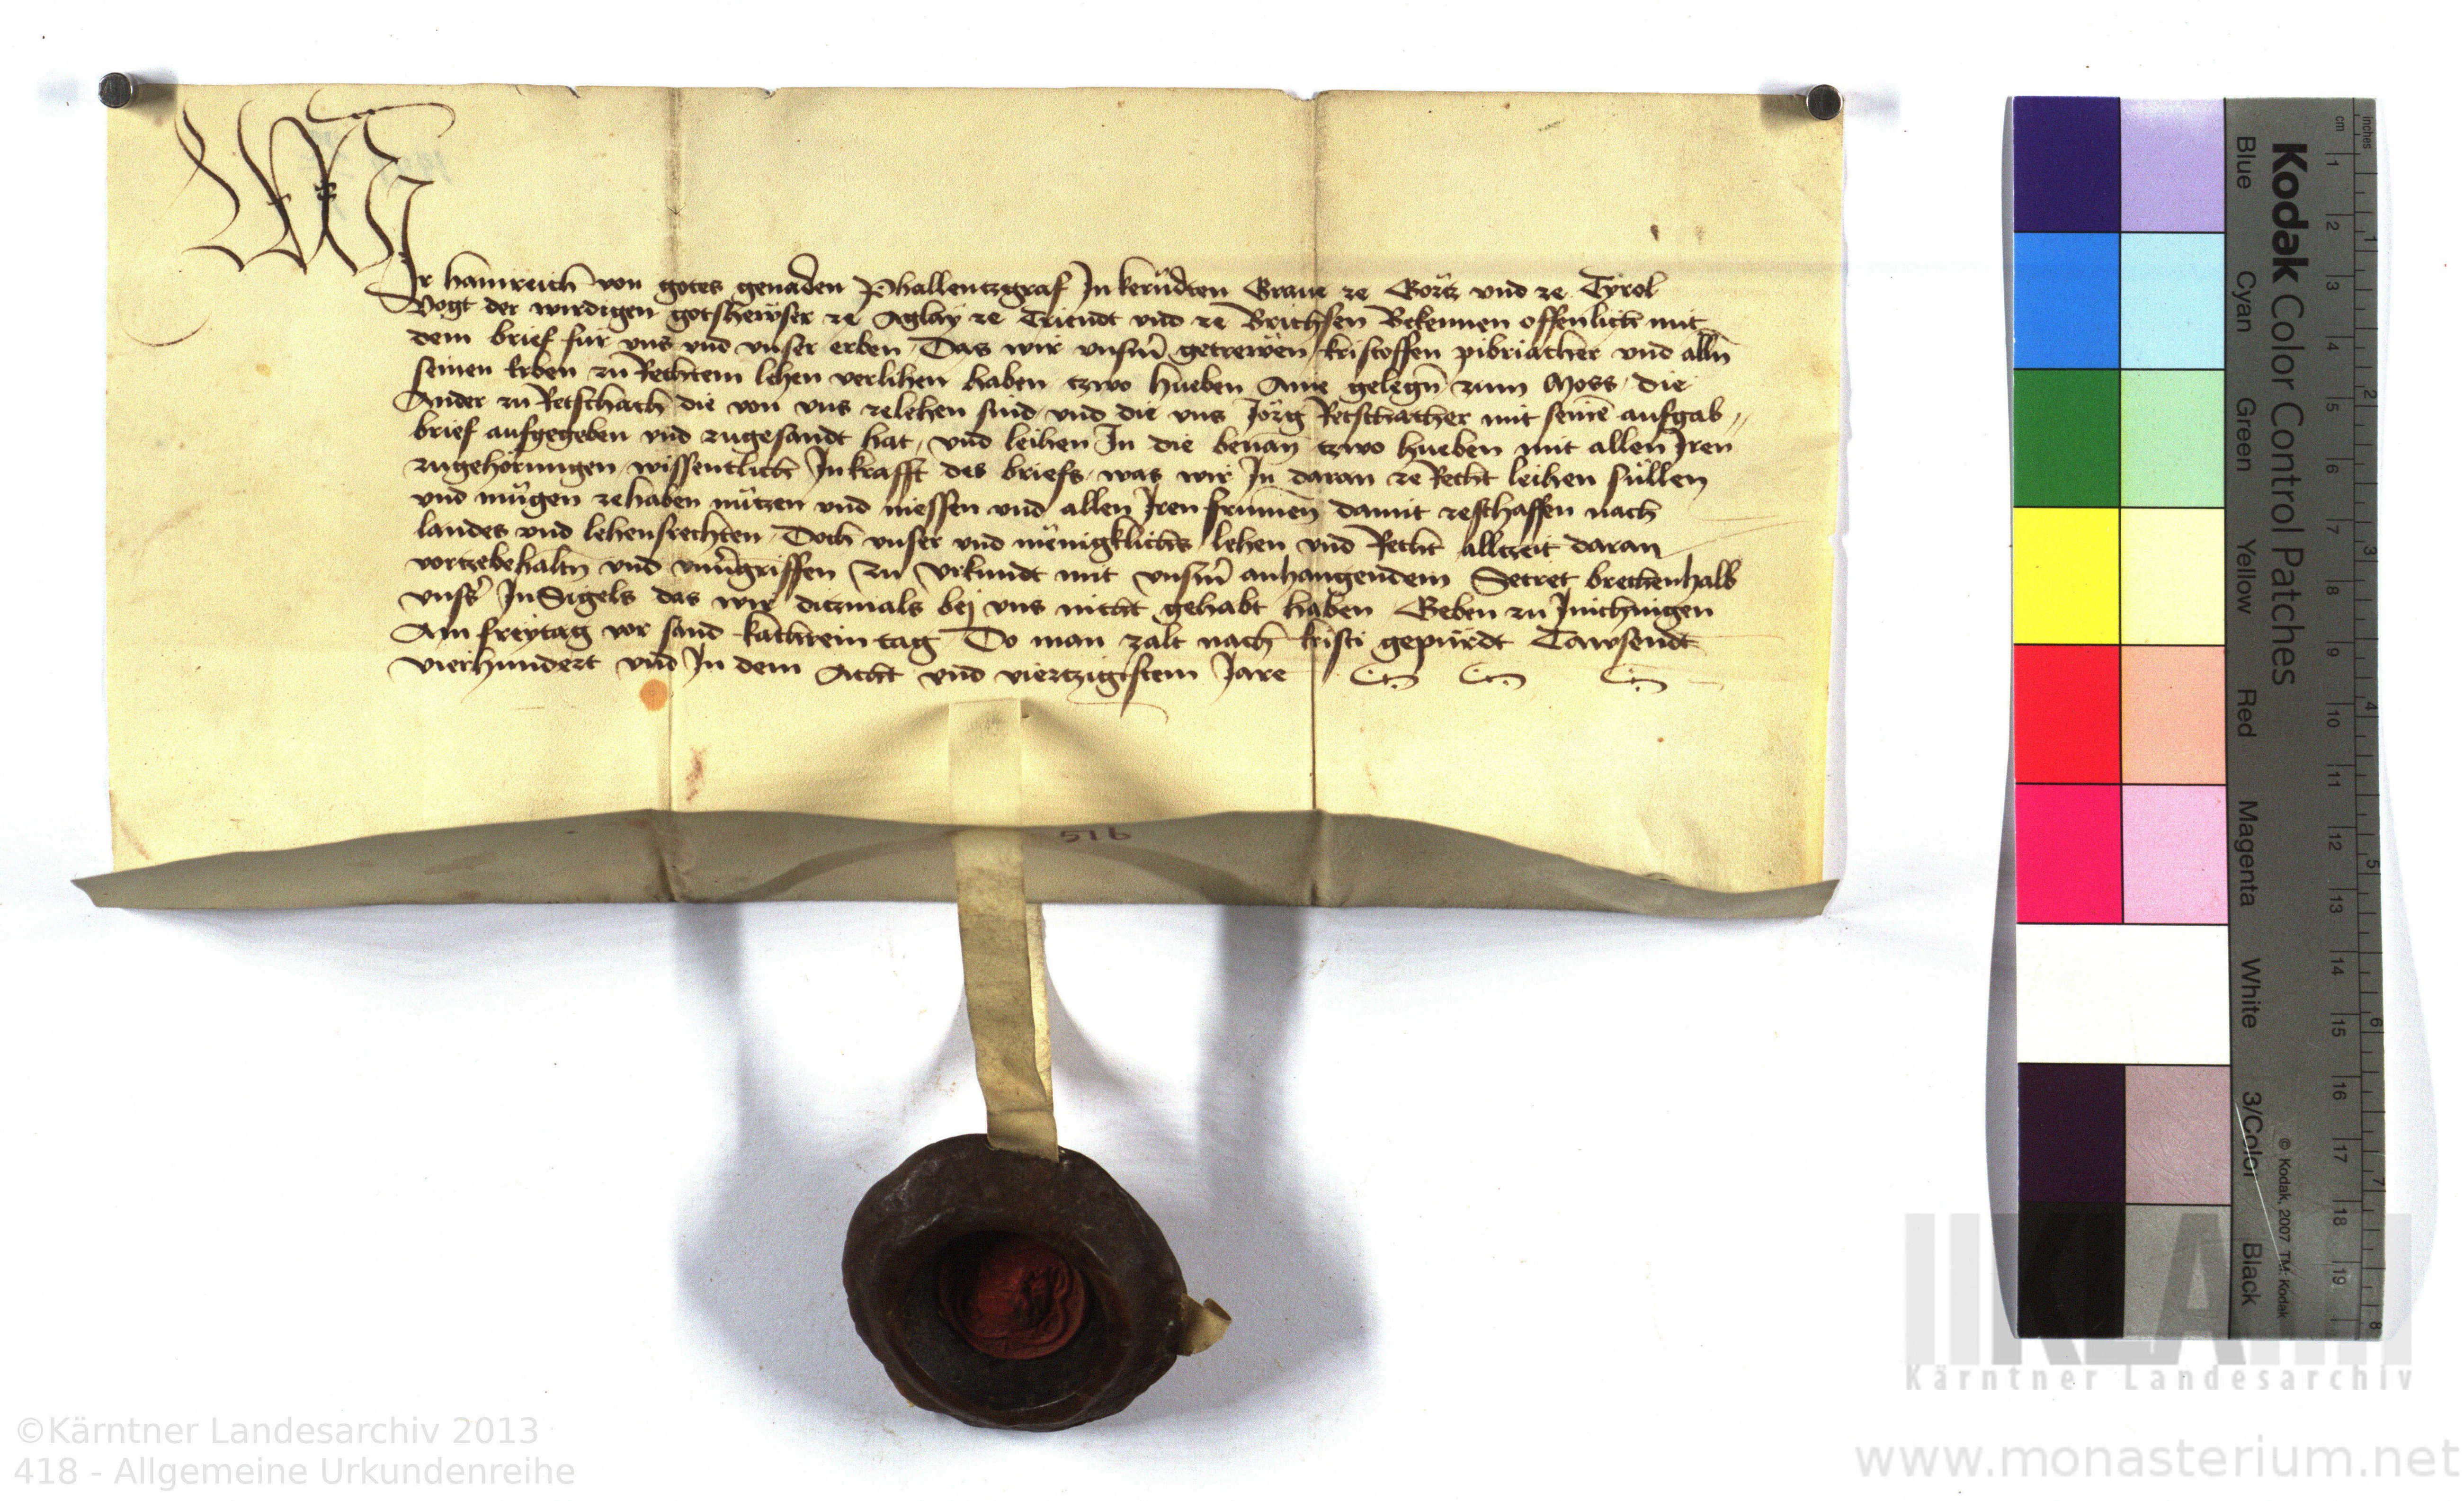 WIr hainreich von gotes genaden Phallentzgraf Jn kernͤdten Graue ze Gortz vnd ze Tyrol
Vogt der wirdigen gotshewser ze Aglay ze Triendt vnd ze Brichsen Bekennen offenlich mit
dem brief fur vns vnd vnser erben Das wir vnserm getrewen kristoffen pibriacher vnd alln
seinen erben zu Rechtem lehen verlihen haben tzwo hueben Aine gelegn zum Moss die
Ander zu Retschach die von vns zelehen sind vnd die vns Jorg Retschacher mit seinē aufgab
brief aufgegeben vnd zugesandt hat vnd leihen Jn die benan̄ tzwo hueben mit allen Jren
zugehorungen wissentlich Jn krafft des briefs was wir Jn daran ze Recht leihen sullen
vnd mugen zehaben nutzen vnd niessen vnd allen Jren frumen damit zeschaffen nach
landes vnd lehensrechten Doch vnser vnd menigklichs lehen vnd Recht alltzeit daran
vortzebehaltn vnd vnuergriffen Zu Vrkundt mit vnserm anhangendem Secret brechenhalb
vnsers JnSigels das wir ditzmals bej vns nicht gehabt haben Geben zu Jnichingen
Am freytag vor sand kathrein tag Do man zalt nach kristi gepurdt Tawsendt
vierhundert vnd Jn dem Acht vnd viertzigistem Jare
516
Kodak Color Control Patches
Blue Cyan Green Yellow Red Magenta White 3/Color Black
© Kodak, 2007 TM: Kodak
cm 1 2 3 4 5 6 7 8 9 10 11 12 13 14 15 16 17 18 19
inches 1 2 3 4 5 6 7 8
KLA
Kärntner Landesarchiv
©Kärntner Landesarchiv 2013
418 - Allgemeine Urkundenreihe
www.monasterium.net